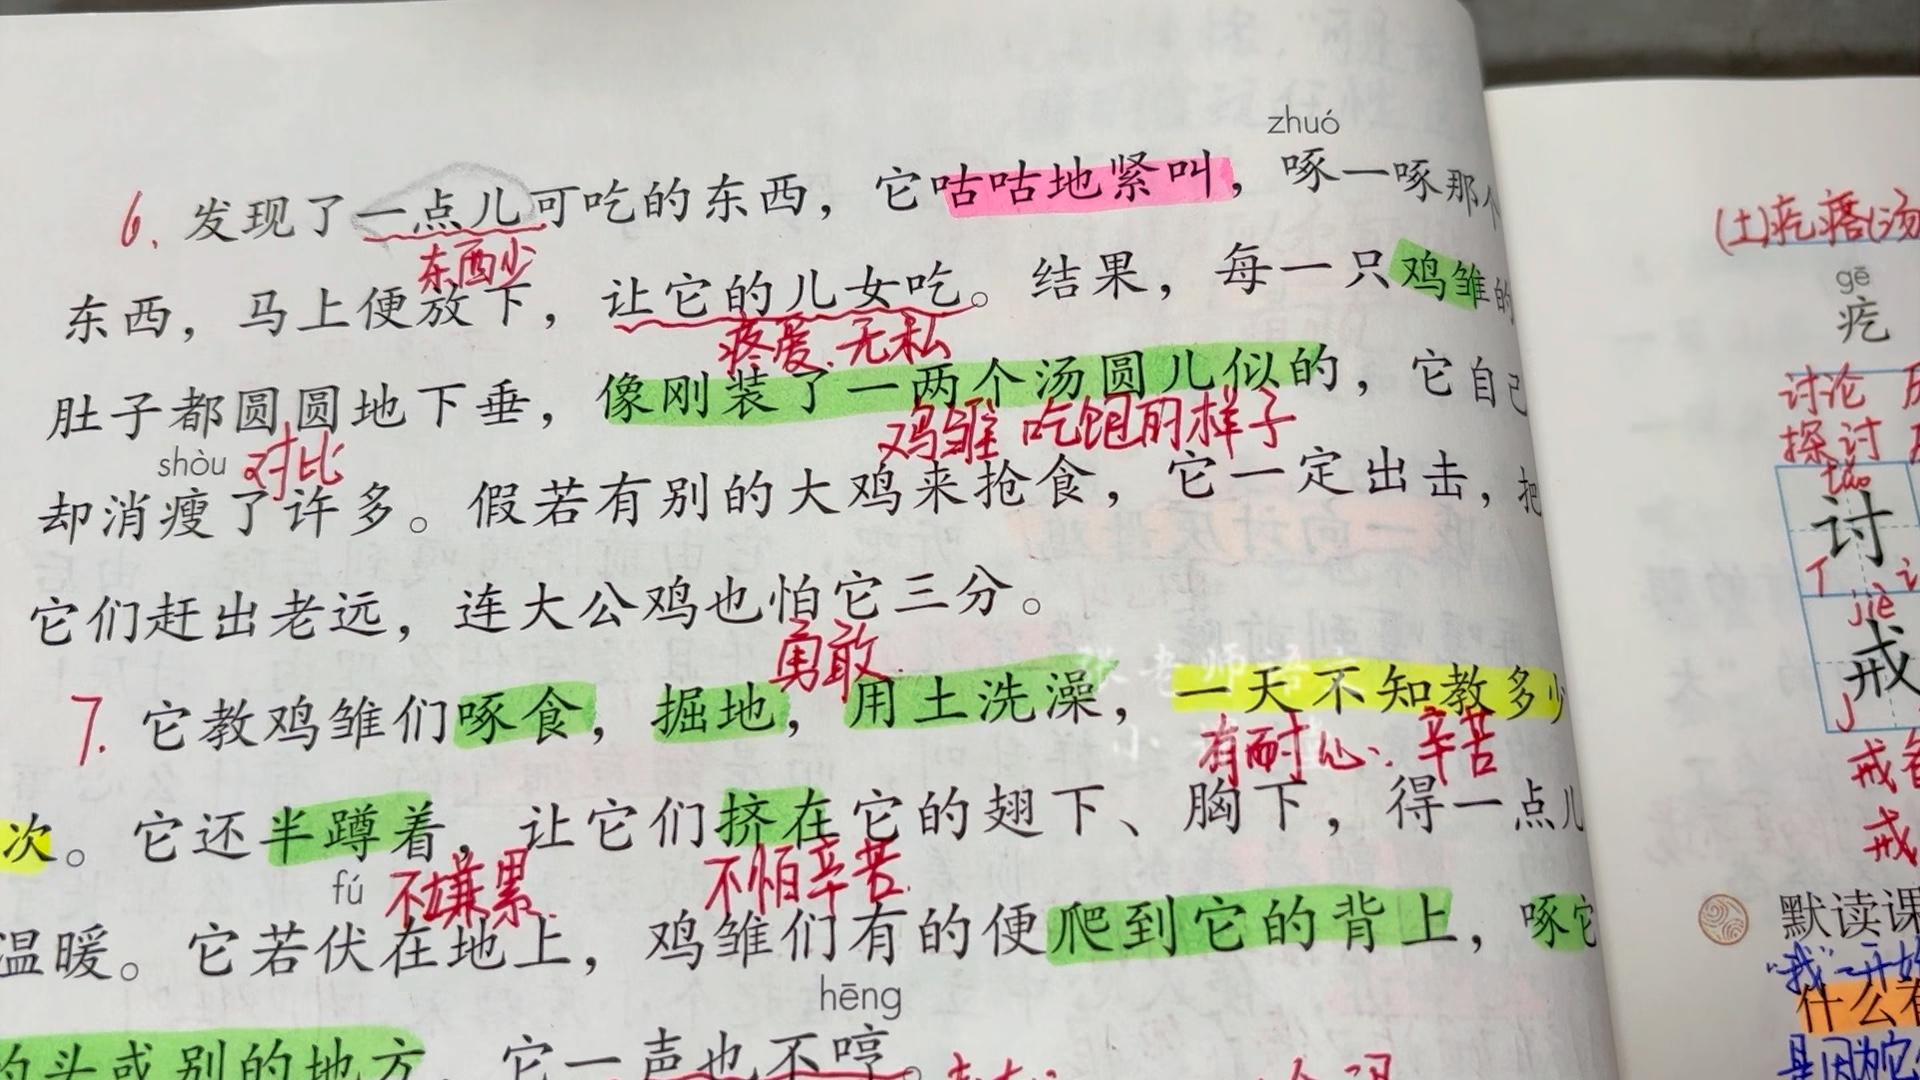 zhuó
6. 发现了一点儿可吃的东西，它咕咕地紧叫，啄一啄那个
东西少
东西，马上便放下，让它的儿女吃。结果，每一只鸡雏的
疼爱、无私
肚子都圆圆地下垂，像刚装了一两个汤圆儿似的，它自己
shòu 对比 鸡雏吃饱的样子
却消瘦了许多。假若有别的大鸡来抢食，它一定出击，把
它们赶出老远，连大公鸡也怕它三分。
勇敢
7. 它教鸡雏们啄食，掘地，用土洗澡，一天不知教多少
有耐心、辛苦
次。它还半蹲着，让它们挤在它的翅下、胸下，得一点儿
fú 不嫌累 不怕辛苦
温暖。它若伏在地上，鸡雏们有的便爬到它的背上，啄它
hēng
的头或别的地方，它一声也不哼。
张老师语
小
(土)疙瘩(汤
gē
疙
讨论
探讨
tǎo
讨
jiè
戒
戒
默读课
“我”一开始
什么
是因为它